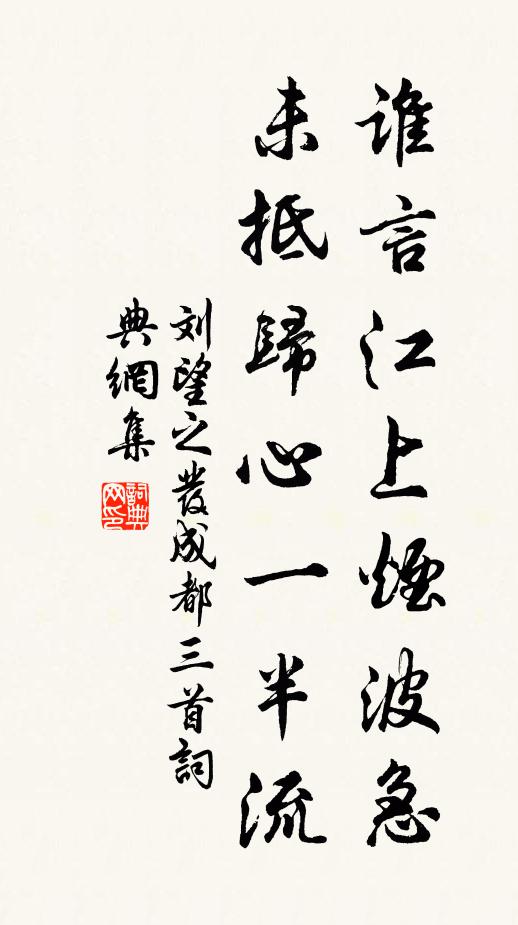 谁言江上煙波急
未抵歸心一半流
刘望之發成都三首詞
典網集
詞典
网印